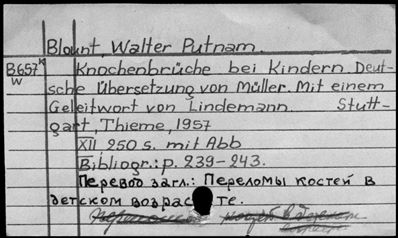 Blount, Walter Putnam.
B657k Knochenbrüche bei Kindern. Deut-
W sche Übersetzung von Müller. Mit einem
Geleitwort von Lindemann. Stutt-
gart, Thieme, 1957
XII, 250 s. mit Abb
Bibliogr.: p. 239-243.
Перевод загл.: Переломы костей в
детском возрасте.